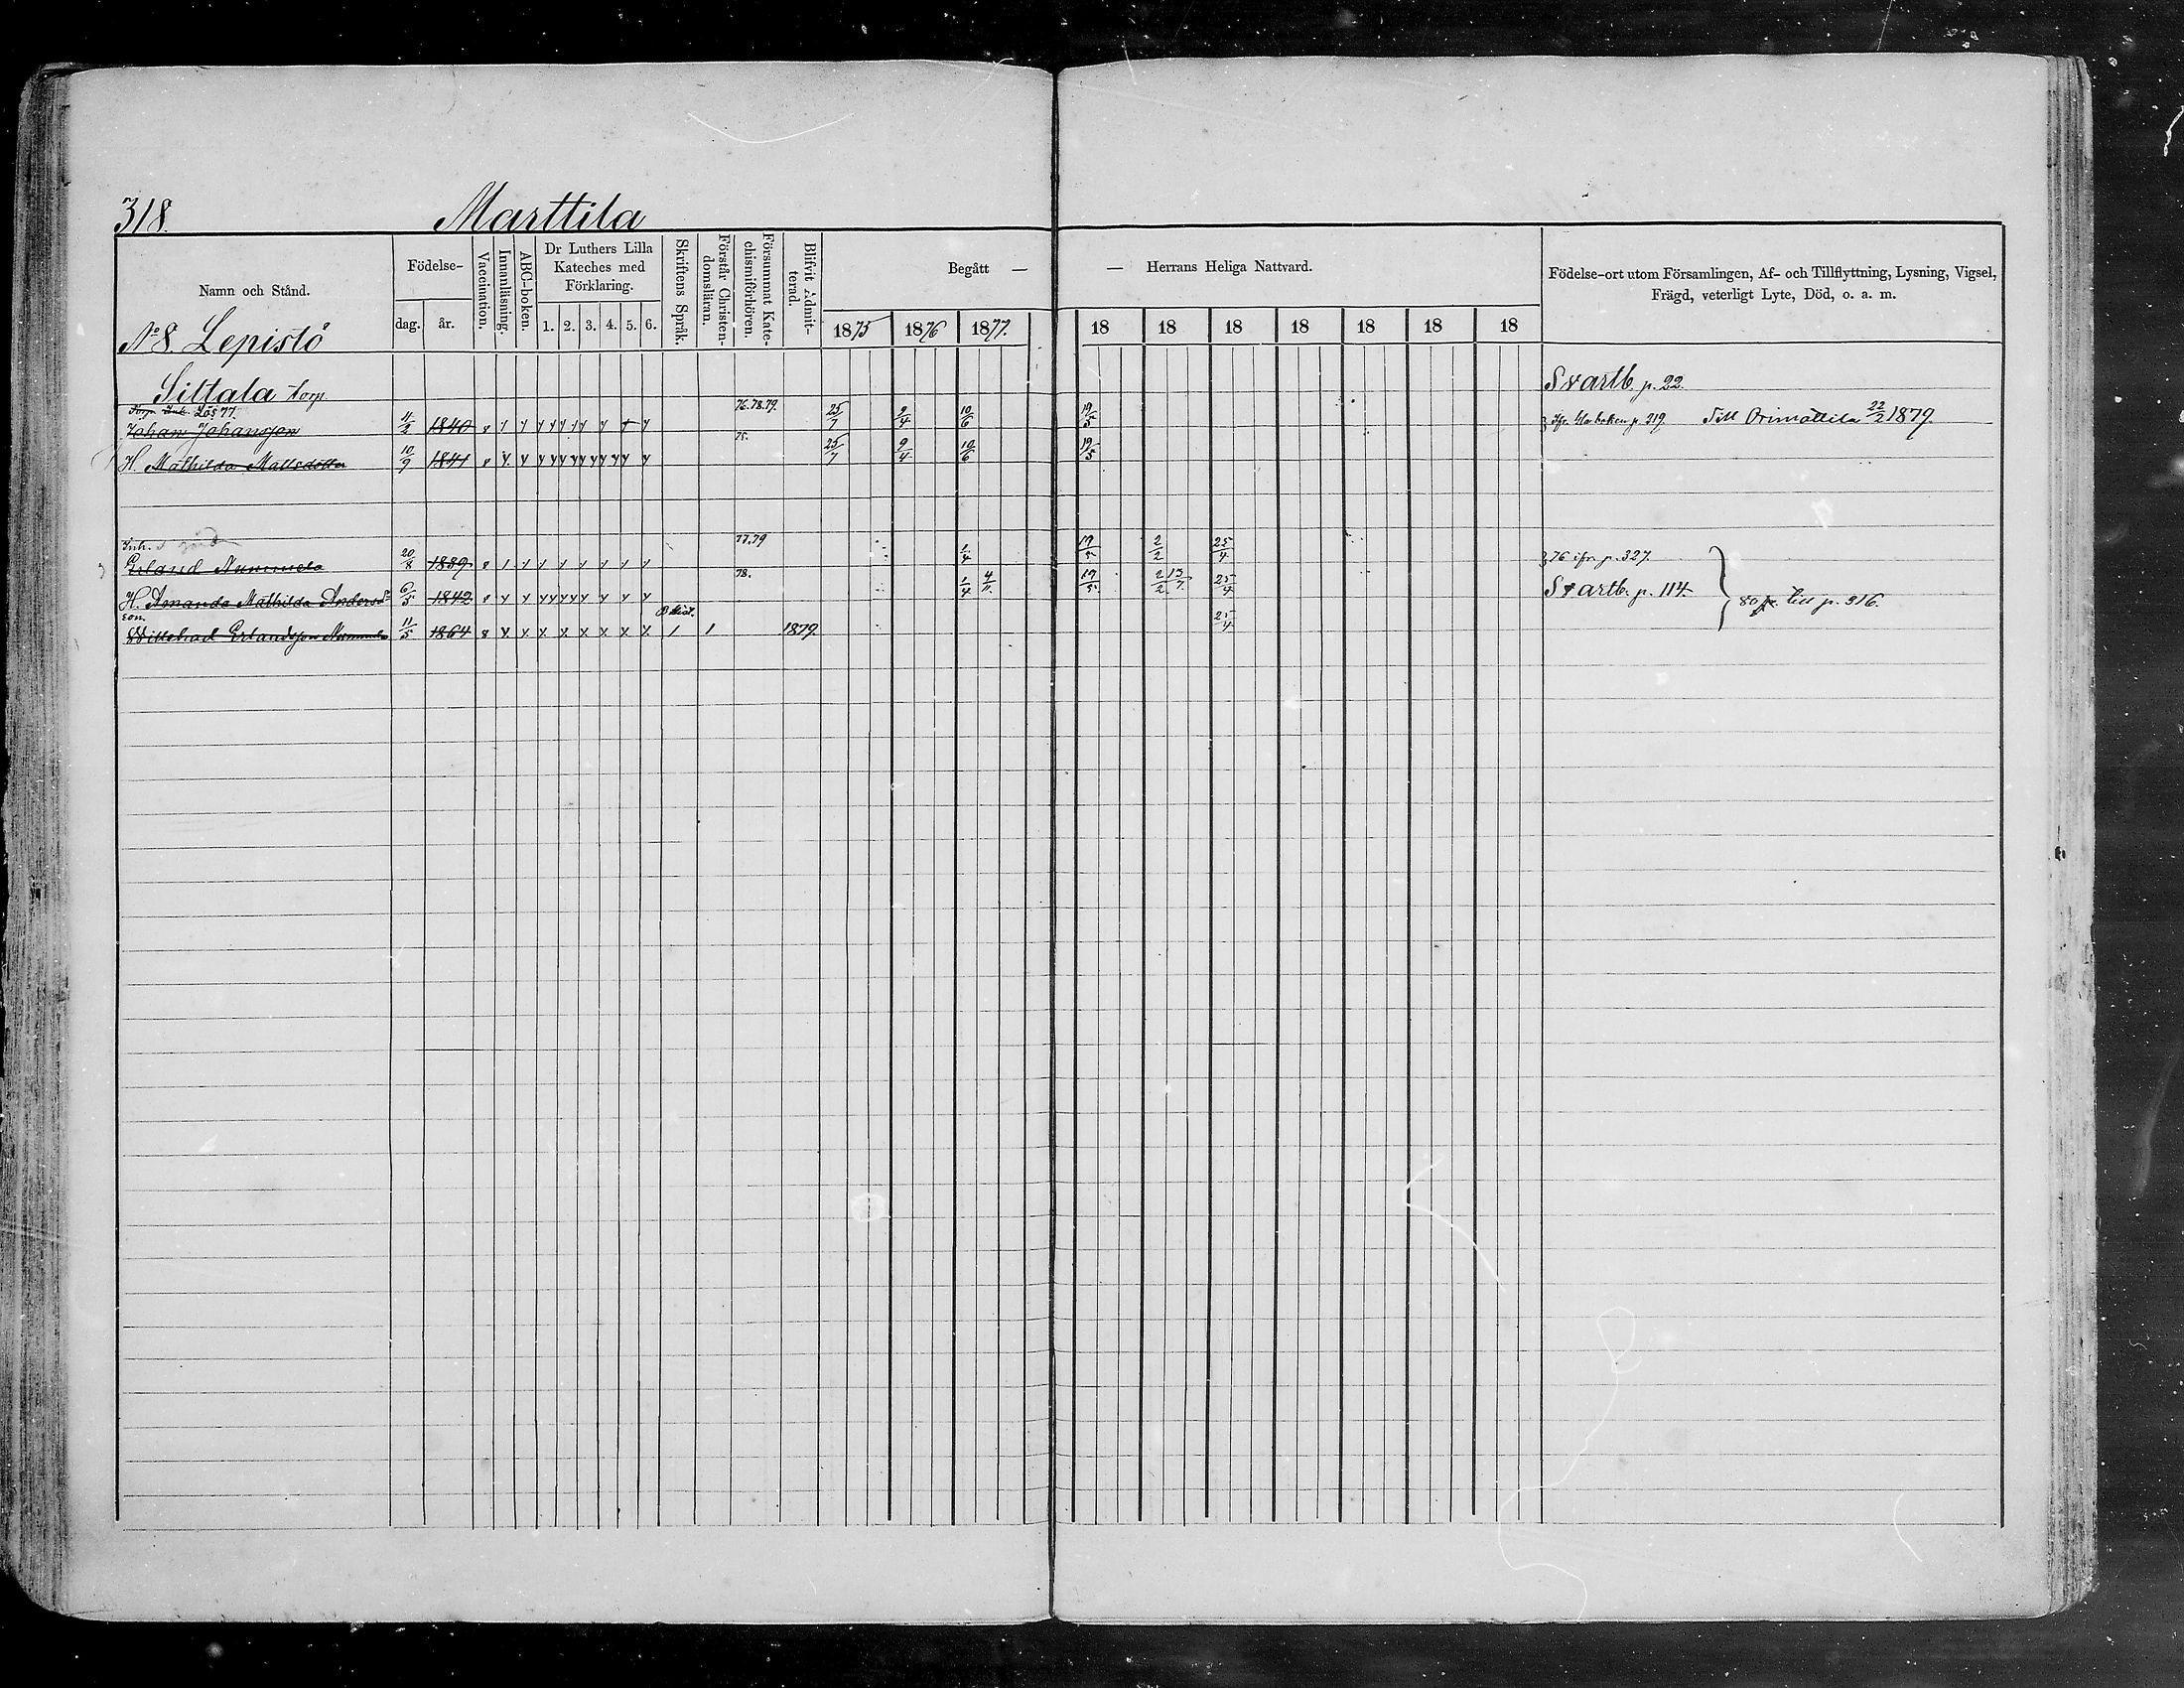 318.
Marttila
Namn och Stånd.
Födelse-
dag.
år.
Vaccination.
Innanläsning.
ABC-boken.
Dr Luthers Lilla
Kateches med
Förklaring.
1. 2. 3. 4. 5. 6.
Skriftens Språk.
Förstår Christen-
domsläran.
Försummat Kate-
chismiförhören.
Blifvit Admit-
terad.
Begått —
— Herrans Heliga Nattvard.
1875 1876 1877.
18 18 18 18 18 18 18
Födelse-ort utom Församlingen, Af- och Tillflyttning, Lysning, Vigsel,
Frägd, veterligt Lyte, Död, o. a. m.
No 8. Lepistö
Siltala torp
Svartb. p. 22.
Torp. Inh. Lös 77. 76.78.79.
Johan Johansson 4/2 1840 25/7 2/4 10/6 19/5 p. 319. Till Orimattila 22/2 1879.
75.
H. Mathilda Mattsdotter 10/9 1841 25/7 9/4 10/6 19/5
Inh. 77.79
Erland Nummela 20/8 1839 1/4 19/5 2/2 25/4 76 ifr. p. 327.
78.
H. Amanda Mathilda Andersd:r 6/5 1842 1/4 4/11 19/5 2/2 13/7 25/4 Svartb. p. 114.
80 till p. 316.
son.
Willehad Erlandsson Nummela 11/5 1864 1879. 25/4